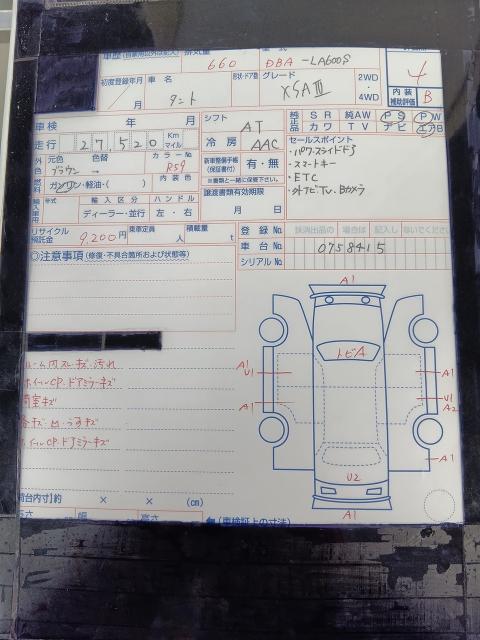 車歴 排気量 660 型式 DBA-LA600S 4
初度登録年月 車名 形状・ドア数 グレード 2WD・4WD 内装補助評価 B
月 タント XSAⅢ
車検 年 月 シフト AT 純正品 SR 純AW PS PW
カワ TV ナビ エアB
走行 27,520 Km マイル 冷房 AAC セールスポイント
外色 元色 色替 カラーNo. R59
ブラウン → ・パワースライドドア
燃料 ガソリン・軽油・( ) 内装色 新車整備手帳(保証書付) 有・無 ・スマートキー
※書類と一緒に保管下さい。 ・ETC
輸入車用 年式 輸入区分 ハンドル 譲渡書類有効期限 ・外ナビTV、Bカメラ
ディーラー・並行 左・右 月 日
リサイクル預託金 9,200円 乗車定員 人 積載量 t 登録No.
車台No. 0758415
◎注意事項(修復・不具合箇所および状態等) シリアルNo.
A1
トビA
A1 U1 A1
A1 U1 A2
ルーム内スレ・キズ・汚れ
ホイールCP・ドアミラーキズ
荷室キズ
各キズ・凹・うすキズ
ホイールCP・ドアミラーキズ
A1
U2
A1
荷台内寸約 × × (cm)
長さ 幅 高さ (車検証上の寸法)